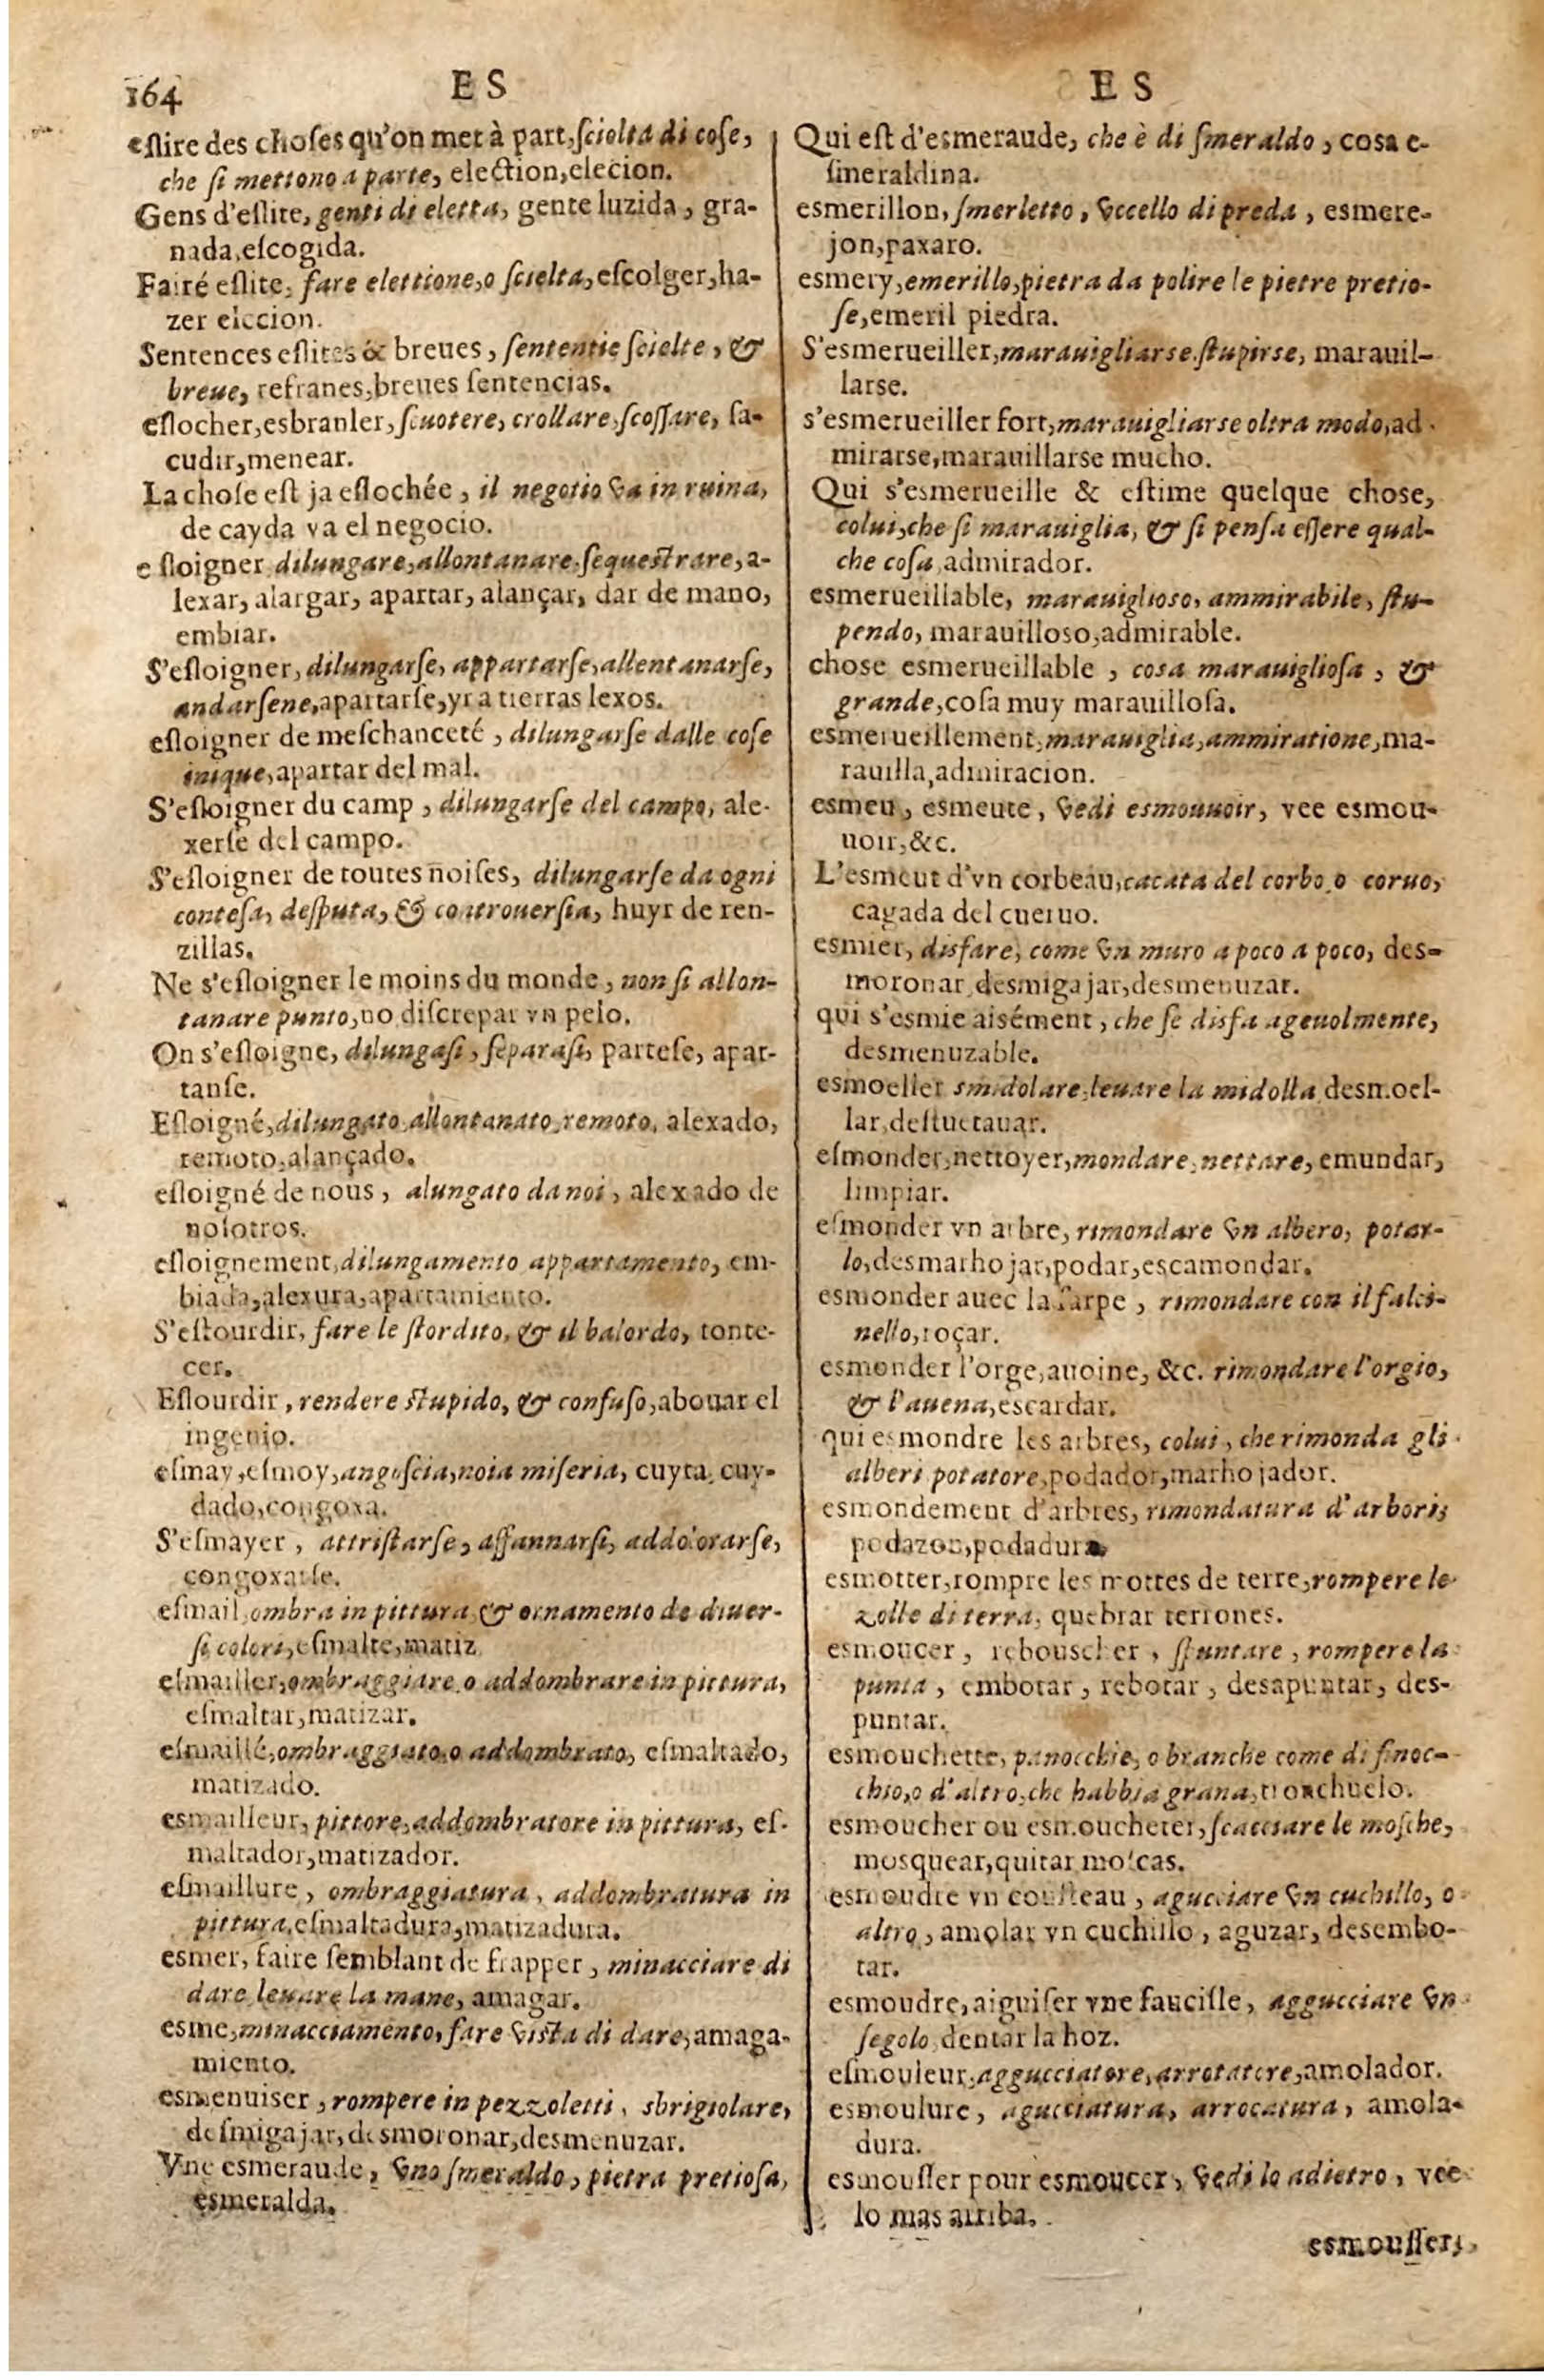 164
ES
eſlire des choſes qu'on met à part, ſcielta di coſe,
che ſi mettono a parte, election, elecion.
Gens d'eſlite, genti di eletta, gente luzida, gra-
nada, eſcogida.
Fairé eſlite, fare elettione, o ſcielta, eſcolger, ha-
zer eleccion.
Sentences eſlites & breues, ſententie ſcielte, &
breue, refranes, breues ſentencias.
eſlocher, esbranler, ſcuotere, crollare, ſcoſſare, ſa-
cudir, menear.
La choſe eſt ja eſlochée, il negotio va in ruina,
de cayda va el negocio.
eſloigner dilungare, allontanare, ſequeſtrare, a-
lexar, alargar, apartar, alançar, dar de mano,
embiar.
S'eſloigner, dilungarſe, appartarſe, allentanarſe,
andarſene, apartarſe, yr a tierras lexos.
eſloigner de meſchanceté, dilungarſe dalle coſe
inique, apartar del mal.
S'eſloigner du camp, dilungarſe del campo, ale-
xerſe del campo.
S'eſloigner de toutes noiſes, dilungarſe da ogni
conteſa, deſputa, & controuerſia, huyr de ren-
zillas.
Ne s'eſloigner le moins du monde, non ſi allon-
tanare punto, no diſcrepar vn pelo.
On s'eſloigne, dilungaſi, ſeparaſi, parteſe, apar-
tanſe.
Eſloigné, dilungato, allontanato, remoto, alexado,
remoto, alançado.
eſloigné de nous, alungato da noi, alexado de
noſotros.
eſloignement, dilungamento appartamento, em-
biada, alexura, apartamiento.
S'eſtourdir, fare le ſtordito, & il balordo, tonte-
cer.
Eſlourdir, rendere ſtupido, & confuſo, abouar el
ingenio.
eſmay, eſmoy, angoſcia, noia miſeria, cuyta, cuy-
dado, congoxa.
S'eſmayer, attriſtarſe, affannarſi, addolorarſe,
congoxarſe.
eſmail, ombra in pittura, & ornamento de diuer-
ſi colori, eſmalte, matiz
eſmailler, ombraggiare, o addombrare in pittura,
eſmaltar, matizar.
eſmaillé, ombraggiato, o addombrato, eſmaltado,
matizado.
esmailleur, pittore, addombratore in pittura, eſ-
maltador, matizador.
eſmaillure, ombraggiatura, addombratura in
pittura, eſmaltadura, matizadura.
esmer, faire ſemblant de frapper, minacciare di
dare, leuare la mane, amagar.
esme, minacciamento, fare viſta di dare, amaga-
miento.
esmenuiser, rompere in pezzoletti, sbrigiolare,
deſmigajar, desmoronar, desmenuzar.
Vne esmeraude, vno ſmeraldo, pietra pretioſa,
esmeralda.
ES
Qui eſt d'esmeraude, che è di ſmeraldo, cosa e-
ſmeraldina.
esmerillon, ſmerletto, vccello di preda, esmere-
jon, paxaro.
esmery, emerillo, pietra da polire le pietre pretio-
ſe, emeril piedra.
S'esmerueiller, marauigliarse, ſtupirse, marauil-
larse.
s'esmerueiller fort, marauigliarse oltra modo, ad-
mirarse, marauillarse mucho.
Qui s'esmerueille & eſtime quelque chose,
colui, che ſi marauiglia, & ſi penſa eſſere qual-
che coſa, admirador.
esmerueillable, marauiglioso, ammirabile, ſtu-
pendo, marauilloso, admirable.
chose esmerueillable, cosa marauiglioſa, &
grande, coſa muy marauilloſa.
esmerueillement, marauiglia, ammiratione, ma-
rauilla, admiracion.
esmeu, esmeute, vedi esmouuoir, vee esmou-
uoir, &c.
L'esmeut d'vn corbeau, cacata del corbo, o coruo,
cagada del cueruo.
esmier, disfare, come vn muro a poco a poco, des-
moronar, desmigajar, desmenuzar.
qui s'esmie aisément, che ſe disfa ageuolmente,
desmenuzable.
esmoeller smidolare, leuare la midolla, desmoel-
lar, deſtuetauar.
eſmonder, nettoyer, mondare, nettare, emundar,
limpiar.
eſmonder vn arbre, rimondare vn albero, potar-
lo, desmarhojar, podar, escamondar.
esmonder auec la ſarpe, rimondare con il falci-
nello, roçar.
esmonder l'orge, auoine, &c. rimondare l'orgio,
& l'auena, escardar.
qui esmondre les arbres, colui, che rimonda gli
alberi potatore, podador, marhojador.
esmondement d'arbres, rimondatura d'arbori,
podazon, podadura.
esmotter, rompre les mottes de terre, rompere le
zolle di terra, quebrar terrones.
esmoucer, rebouscher, ſpuntare, rompere la
punta, embotar, rebotar, desapuntar, des-
puntar.
esmouchette, panocchie, o branche come di finoc-
chio, o d'altro, che habbia grana, tronchuelo.
esmoucher ou esmoucheter, ſcacciare le moſche,
mosquear, quitar moſcas.
esmoudre vn couſteau, agucciare vn cuchillo, o
altro, amolar vn cuchillo, aguzar, desembo-
tar.
esmoudre, aiguiſer vne faucille, aggucciare vn
ſegolo, dentar la hoz.
eſmouleur, aggucciatore, arrotatore, amolador.
esmoulure, agucciatura, arrocatura, amola-
dura.
esmouſſer pour esmoucer, vedi lo adietro, vee
lo mas arriba.
esmouſſer,